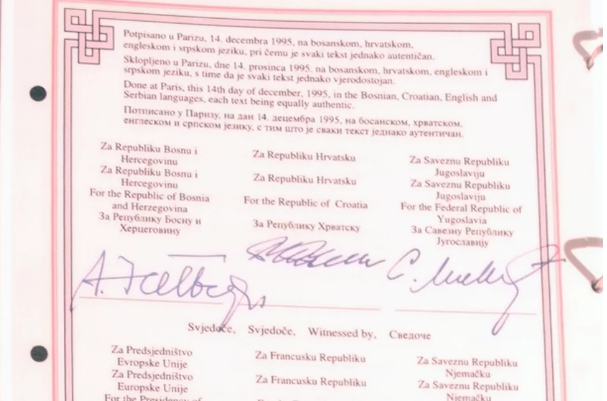 Potpisano u Parizu, 14. decembra 1995, na bosanskom, hrvatskom,
engleskom i srpskom jeziku, pri čemu je svaki tekst jednako autentičan.
Sklopljeno u Parizu, dne 14. prosinca 1995, na bosanskom, hrvatskom, engleskom i
srpskom jeziku, s time da je svaki tekst jednako vjerodostojan.
Done at Paris, this 14th day of december, 1995, in the Bosnian, Croatian, English and
Serbian languages, each text being equally authentic.
Потписано у Паризу, на дан 14. децембра 1995, на босанском, хрватском,
енглеском и српском језику, с тим што је сваки текст једнако аутентичан.
Za Republiku Bosnu i
Hercegovinu
Za Republiku Bosnu i
Hercegovinu
For the Republic of Bosnia
and Herzegovina
За Републику Босну и
Херцеговину
Za Republiku Hrvatsku
Za Republiku Hrvatsku
For the Republic of Croatia
За Републику Хрватску
Za Saveznu Republiku
Jugoslaviju
Za Saveznu Republiku
Jugoslaviju
For the Federal Republic of
Yugoslavia
За Савезну Републику
Југославију
Svjedoče, Svjedoče, Witnessed by, Сведоче
Za Predsjedništvo
Evropske Unije
Za Predsjedništvo
Europske Unije
For the Presidency of
Za Francusku Republiku
Za Francusku Republiku
Za Saveznu Republiku
Njemačku
Za Saveznu Republiku
Njemačku